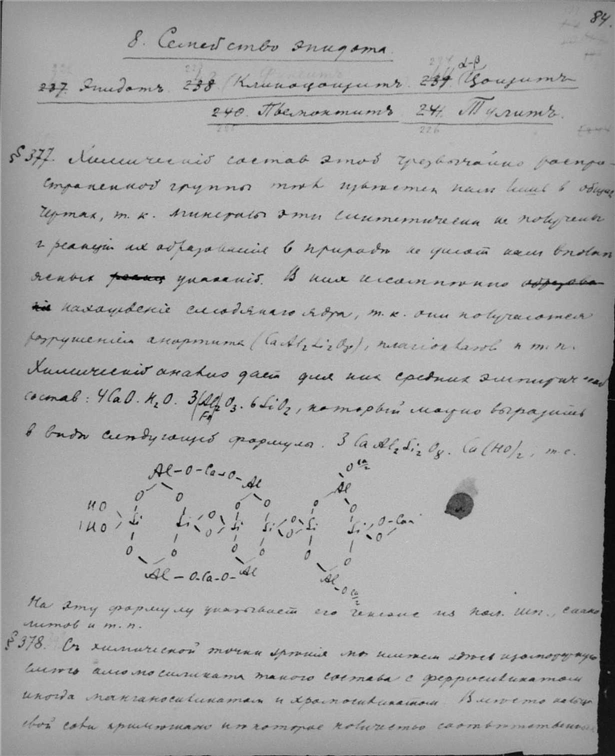 84.
8. Семейство эпидота.
α-β
237. Эпидотъ. 238 Клиноцоизитъ. 239 Цоизитъ
240. Пьемонтитъ 241. Тулитъ.
§377. Химическій составъ этой чрезвычайно распро-
страненной группы извѣстен нам лишь в общих
чертах, т. к. минералы эти синтетически не получены
и реакціи их образованія в природѣ не дают нам вполнѣ
ясных указаній. В них несомнѣнно
нахожденіе слюдяного ядра, т. к. они получаются
разрушеніем анортита (CaAl2Si2O8), плагіоклазов и т. п.
Химическій анализ дает для них средній эмпирическій
состав: 4CaO. H2O. 3(Al)2O3. 6SiO2, который можно выразить
Fe
в видѣ слѣдующей формулы. 3CaAl2Si2O8. Ca(HO)2, т. е.
Al–O–Ca–O–Al
HO
HO
Si Si Si Si Si Si
Al–O–Ca–O–Al
На эту формулу указывает его генезис из пол. шп.,
литов и т. п.
§378. С химической точки зрѣнія мы имѣем здѣсь изоморфную
смѣсь алюмосиликата такого состава с ферросиликатом
иногда манганосиликатом и хромосиликатом. Вмѣсто
свой